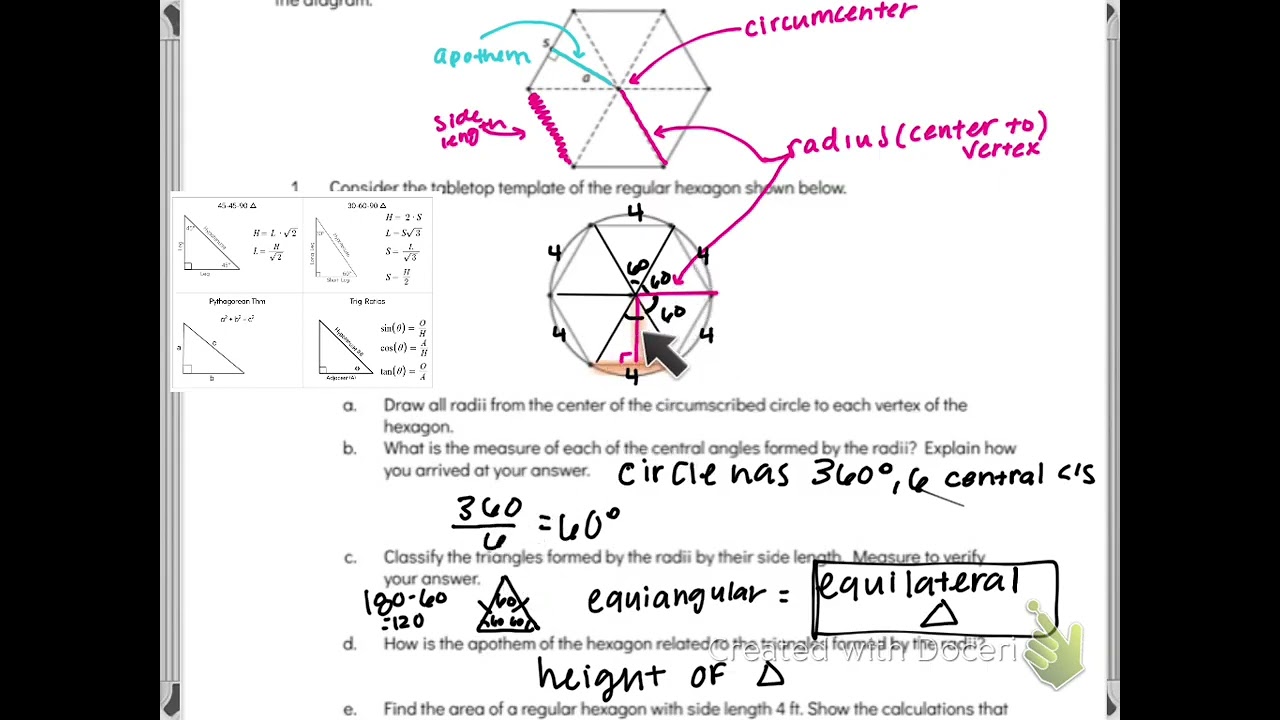 the diagram.
circumcenter
apothem
s
a
side
length
radius (center to)
vertex
1. Consider the tabletop template of the regular hexagon shown below.
45-45-90 △
H = L · √2
L = H/√2
45°
45°
Leg
Leg
Hypotenuse
30-60-90 △
H = 2 · S
L = S√3
S = L/√3
S = H/2
30°
60°
Long Leg
Hypotenuse
Short Leg
Pythagorean Thm
a² + b² = c²
a
c
b
Trig Ratios
sin(θ) = O/H
cos(θ) = A/H
tan(θ) = O/A
Hypotenuse (H)
θ
Adjacent (A)
4
4
4
60
60
60
4
4
4
a. Draw all radii from the center of the circumscribed circle to each vertex of the
hexagon.
b. What is the measure of each of the central angles formed by the radii? Explain how
you arrived at your answer. circle has 360°, 6 central <'s
360/6 = 60°
c. Classify the triangles formed by the radii by their side length. Measure to verify
your answer.
180-60
=120
60
60 60
equiangular = equilateral
△
d. How is the apothem of the hexagon related to the triangles formed by the radii?
Created with Doceri
height of △
e. Find the area of a regular hexagon with side length 4 ft. Show the calculations that